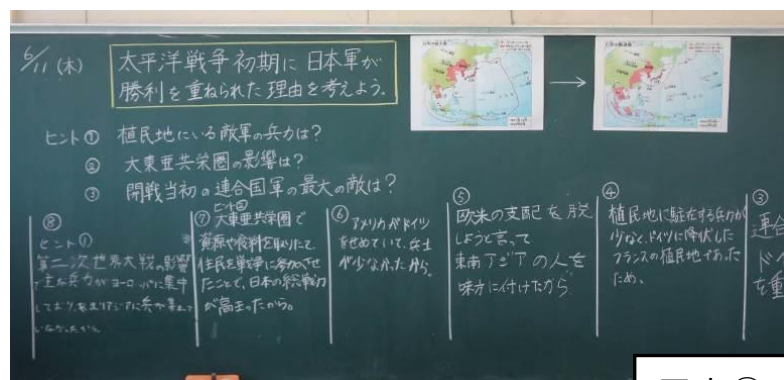 6/11 (木)
太平洋戦争初期に日本軍が
勝利を重ねられた理由を考えよう.
ヒント① 植民地にいる敵軍の兵力は?
② 大東亜共栄圏の影響は?
③ 開戦当初の連合国軍の最大の敵は?
⑧
ヒント①
第二次世界大戦の影響
で主な兵力がヨーロッパに集中
しており、あまりアジアに兵が集まって
いなかったから
⑦ ヒント②
大東亜共栄圏で
資源や食料を取りたて、
住民を戦争に参加させ
たことで、日本の総戦力
が高まったから。
⑥ アメリカがドイツ
をせめていて、兵士
が少なかったから.
⑤
欧米の支配を脱
しようと言って
東南アジアの人を
味方に付けたから
④
植民地に駐在する兵力が
少なく、ドイツに降伏した
フランスの植民地であった
ため.
③
連合
ドイ
を重